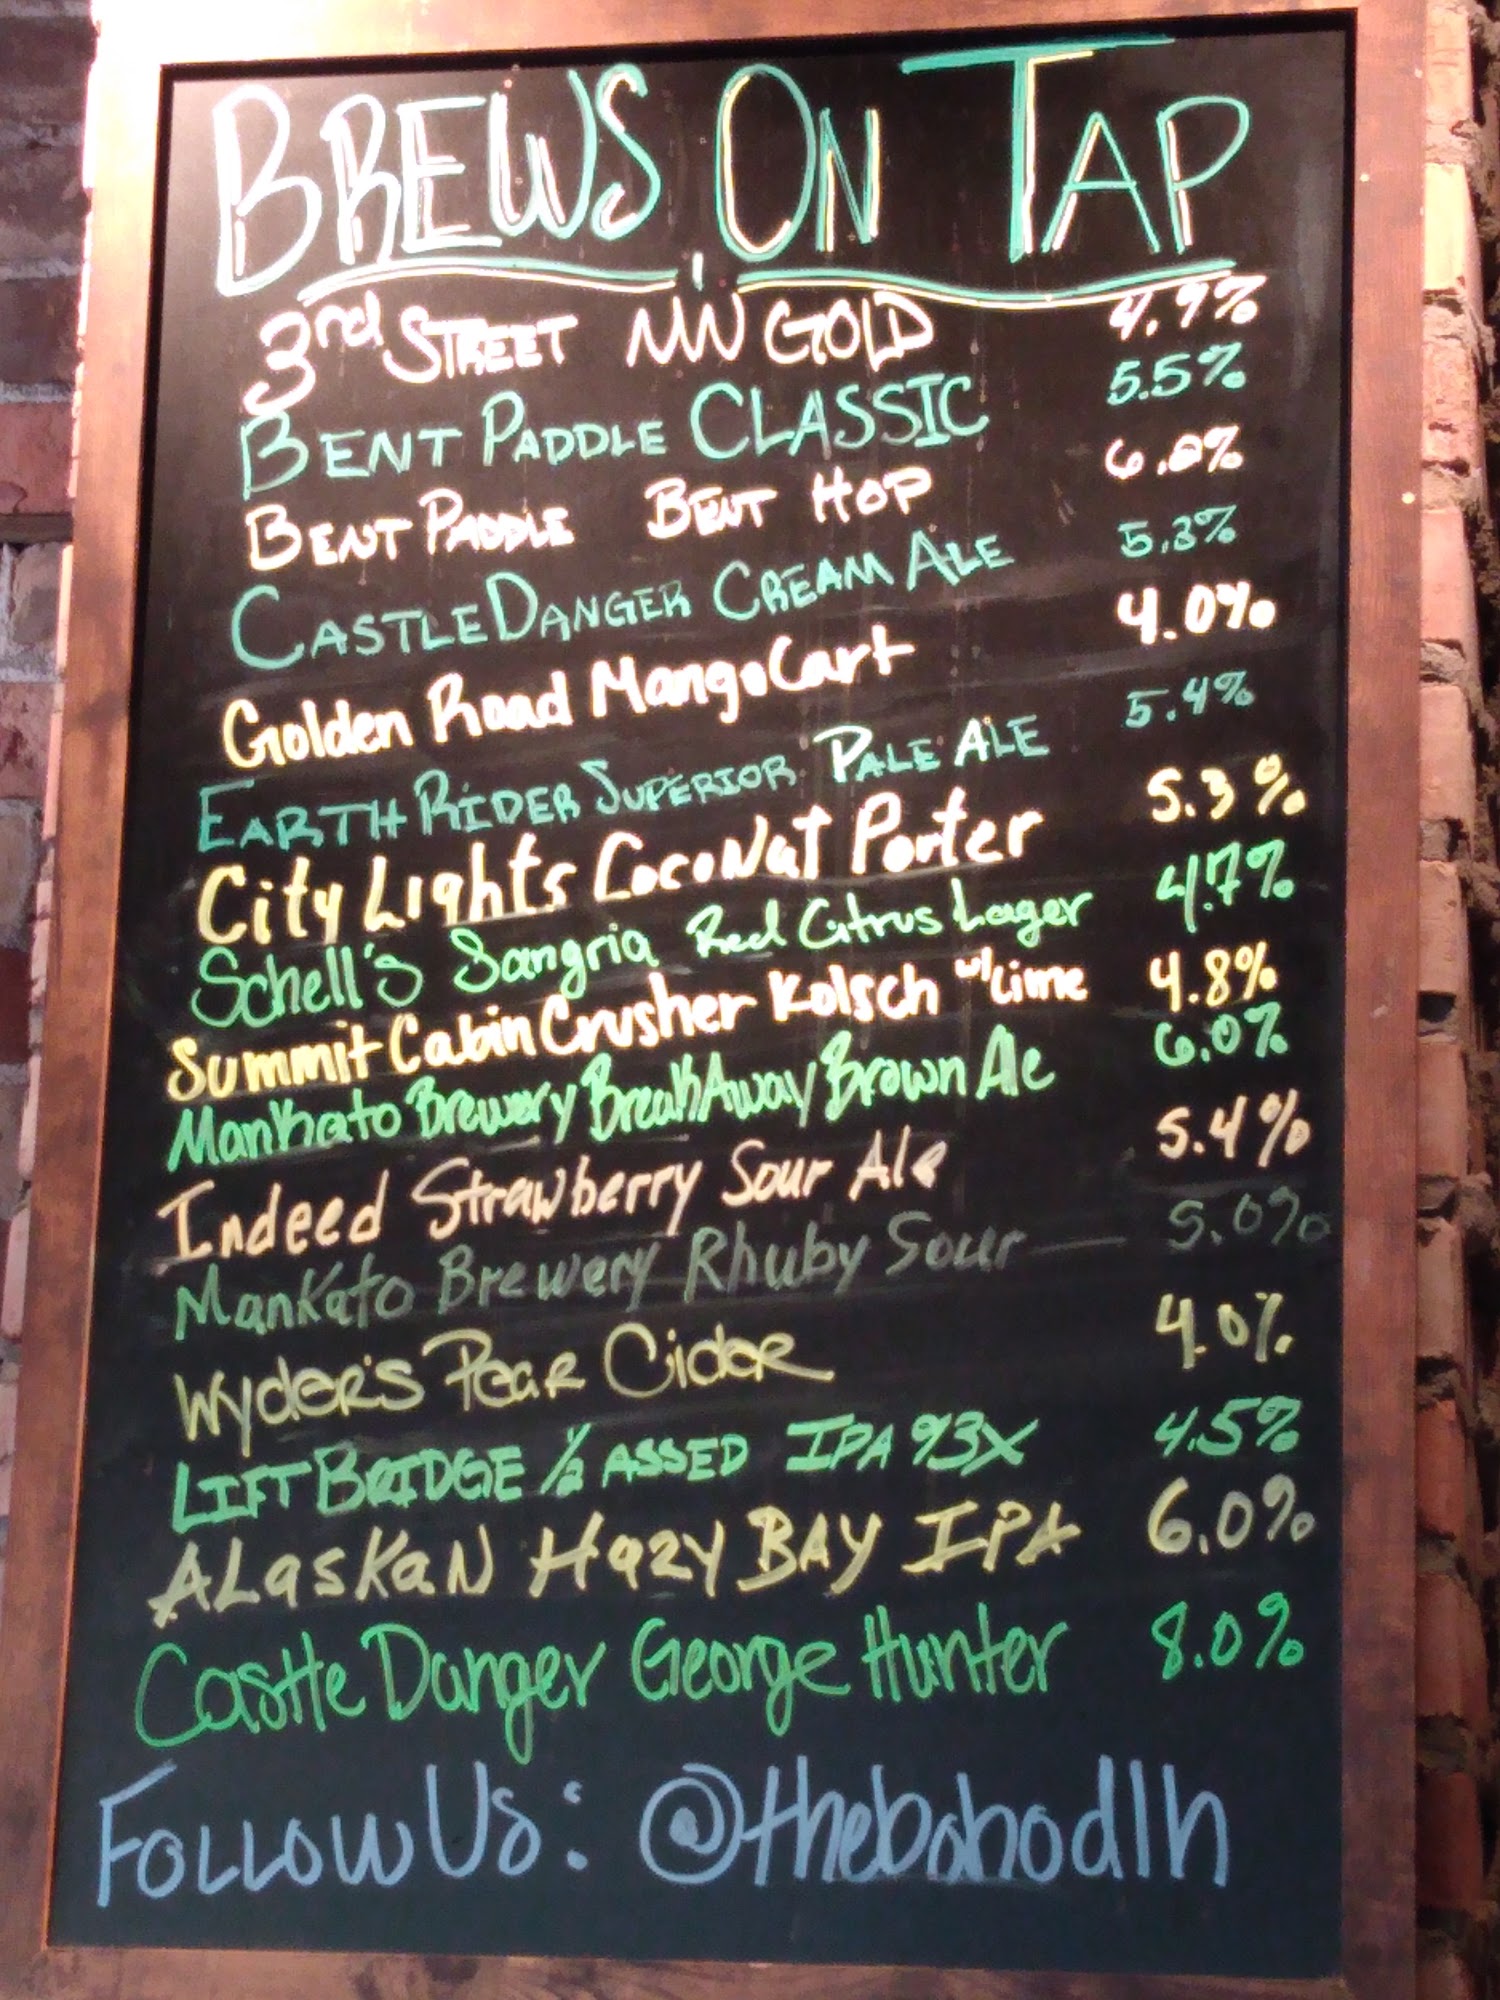 BREWS ON TAP
3rd STREET MN GOLD 4.9%
BENT PADDLE CLASSIC 5.5%
BENT PADDLE BENT HOP 6.2%
CASTLE DANGER CREAM ALE 5.3%
Golden Road Mango Cart 4.0%
EARTH RIDER SUPERIOR PALE ALE 5.4%
City Lights CocoNut Porter 5.3%
Schell's Sangria Red Citrus Lager 4.7%
Summit Cabin Crusher Kolsch w/Lime 4.8%
Mankato Brewery BreakAway Brown Ale 6.0%
Indeed Strawberry Sour Ale 5.4%
Mankato Brewery Rhuby Sour 5.0%
Wyder's Pear Cider 4.0%
LIFT BRIDGE ½ ASSED IPA 93X 4.5%
ALasKaN Hazy BAY IPA 6.0%
Castle Danger George Hunter 8.0%
FOLLOW US: @thebohodlh